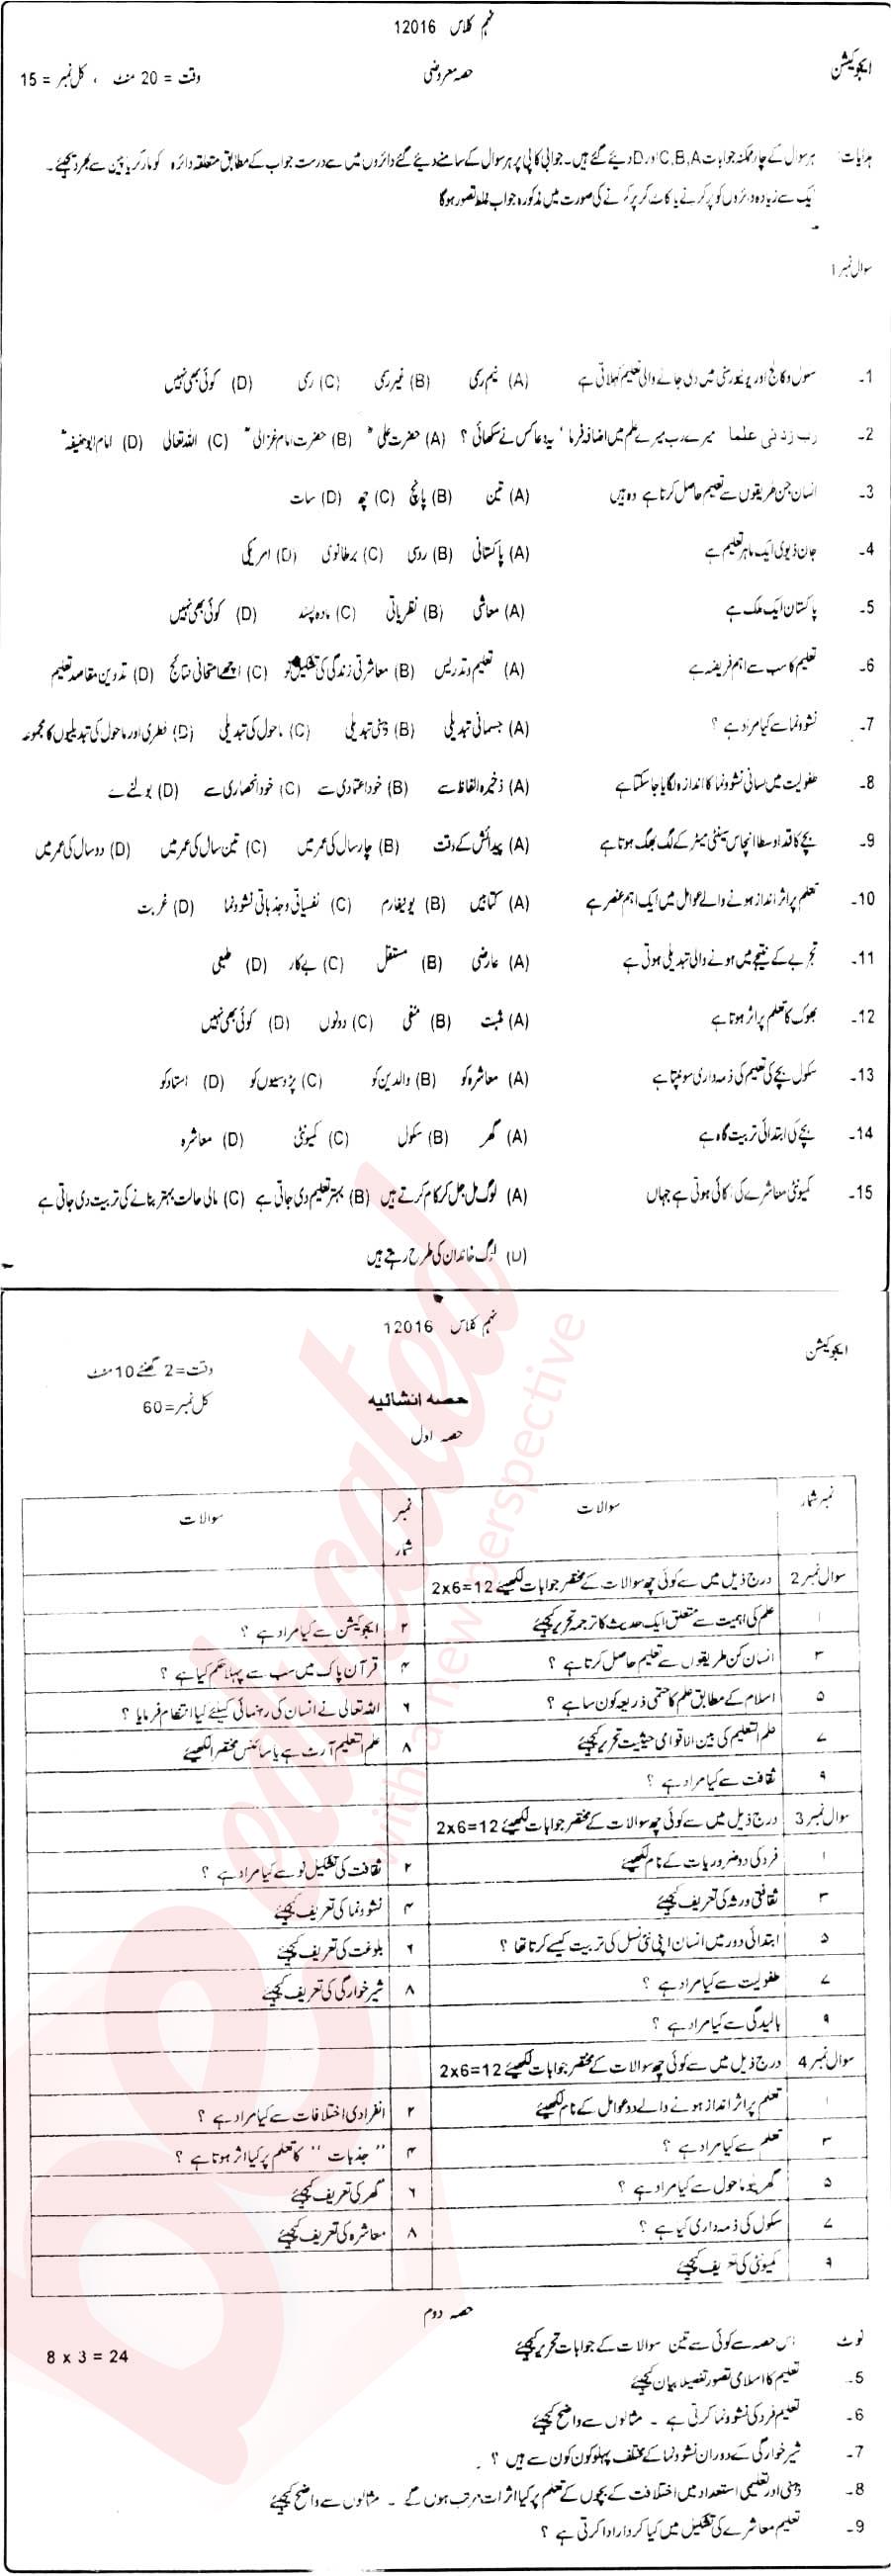 نہم کلاس 12016
ایجوکیشن
حصہ معروضی
وقت = 20 منٹ ، کل نمبر = 15
ہدایات: ہر سوال کے چار ممکنہ جوابات C,B,A اور D دیئے گئے ہیں۔ جوابی کاپی پر ہر سوال کے سامنے دیئے گئے دائروں میں سے درست جواب کے مطابق متعلقہ دائرہ کو مارکر یا پین سے بھر دیجئے۔
ایک سے زیادہ دائروں کو پر کرنے یا کاٹ کر پر کرنے کی صورت میں مذکورہ جواب غلط تصور ہوگا
سوال نمبر 1
1۔ سکول و کالج اور یونیورسٹی میں دی جانے والی تعلیم کہلاتی ہے (A) نیم رسمی (B) غیر رسمی (C) رسمی (D) کوئی بھی نہیں
2۔ رب زدنی علما میرے رب میرے علم میں اضافہ فرما ' یہ دعا کس نے سکھائی ؟ (A) حضرت علیؓ (B) حضرت امام غزالیؒ (C) اللہ تعالی (D) امام ابوحنیفہؒ
3۔ انسان جن طریقوں سے تعلیم حاصل کرتا ہے وہ ہیں (A) تین (B) پانچ (C) چھ (D) سات
4۔ جان ڈیوی ایک ماہر تعلیم ہے (A) پاکستانی (B) روسی (C) برطانوی (D) امریکی
5۔ پاکستان ایک ملک ہے (A) معاشی (B) نظریاتی (C) مادہ پسند (D) کوئی بھی نہیں
6۔ تعلیم کا سب سے اہم فریضہ ہے (A) تعلیم و تدریس (B) معاشرتی زندگی کی تشکیل نو (C) اچھے امتحانی نتائج (D) تدوین مقاصد تعلیم
7۔ نشوونما سے کیا مراد ہے ؟ (A) جسمانی تبدیلی (B) ذہنی تبدیلی (C) ماحول کی تبدیلی (D) فطری اور ماحول کی تبدیلیوں کا مجموعہ
8۔ طفولیت میں لسانی نشوونما کا اندازہ لگایا جا سکتا ہے (A) ذخیرہ الفاظ سے (B) خود اعتمادی سے (C) خود انحصاری سے (D) بولنے سے
9۔ بچے کا قد اوسطا انچاس سینٹی میٹر کے لگ بھگ ہوتا ہے (A) پیدائش کے وقت (B) چار سال کی عمر میں (C) تین سال کی عمر میں (D) دو سال کی عمر میں
10۔ تعلم پر اثر انداز ہونے والے عوامل میں ایک اہم عنصر ہے (A) کتابیں (B) یونیفارم (C) نفسیاتی و جذباتی نشوونما (D) غربت
11۔ تجربے کے نتیجے میں ہونے والی تبدیلی ہوتی ہے (A) عارضی (B) مستقل (C) بے کار (D) طبعی
12۔ بھوک کا تعلم پر اثر ہوتا ہے (A) مثبت (B) منفی (C) دونوں (D) کوئی بھی نہیں
13۔ سکول بچے کی تعلیم کی ذمہ داری سونپتا ہے (A) معاشرہ کو (B) والدین کو (C) پڑوسیوں کو (D) استاد کو
14۔ بچے کی ابتدائی تربیت گاہ ہے (A) گھر (B) سکول (C) کمیونٹی (D) معاشرہ
15۔ کمیونٹی معاشرے کی اکائی ہوتی ہے جہاں (A) لوگ مل جل کر کام کرتے ہیں (B) بہتر تعلیم دی جاتی ہے (C) مالی حالت بہتر بنانے کی تربیت دی جاتی ہے
(D) لوگ خاندان کی طرح رہتے ہیں
نہم کلاس 12016
ایجوکیشن
وقت = 2 گھنٹے 10 منٹ
حصہ انشائیہ
کل نمبر = 60
حصہ اول
نمبر شمار سوالات نمبر شمار سوالات
سوال نمبر 2 درج ذیل میں سے کوئی چھ سوالات کے مختصر جوابات لکھیئے 2x6=12
۱ علم کی اہمیت سے متعلق ایک حدیث کا ترجمہ تحریر کیجئے ۲ ایجوکیشن سے کیا مراد ہے ؟
۳ انسان کن طریقوں سے تعلیم حاصل کرتا ہے ؟ ۴ قرآن پاک میں سب سے پہلا حکم کیا ہے ؟
۵ اسلام کے مطابق علم کا حتمی ذریعہ کون سا ہے ؟ ۶ اللہ تعالی نے انسان کی رہنمائی کیلئے کیا انتظام فرمایا ؟
۷ علم التعلیم کی بین الاقوامی حیثیت تحریر کیجئے ۸ علم التعلیم آرٹ ہے یا سائنس مختصر لکھیئے
۹ ثقافت سے کیا مراد ہے ؟
سوال نمبر 3 درج ذیل میں سے کوئی چھ سوالات کے مختصر جوابات لکھیئے 2x6=12
۱ فرد کی دو ضروریات کے نام لکھیئے ۲ ثقافت کی تشکیل نو سے کیا مراد ہے ؟
۳ ثقافتی ورثہ کی تعریف کیجئے ۴ نشوونما کی تعریف کیجئے
۵ ابتدائی دور میں انسان اپنی نئی نسل کی تربیت کیسے کرتا تھا ؟ ۶ بلوغت کی تعریف کیجئے
۷ طفولیت سے کیا مراد ہے ؟ ۸ شیر خوارگی کی تعریف کیجئے
۹ بالیدگی سے کیا مراد ہے ؟
سوال نمبر 4 درج ذیل میں سے کوئی چھ سوالات کے مختصر جوابات لکھیئے 2x6=12
۱ تعلم پر اثر انداز ہونے والے دو عوامل کے نام لکھیئے ۲ انفرادی اختلافات سے کیا مراد ہے ؟
۳ تعلم سے کیا مراد ہے ؟ ۴ "جذبات" کا تعلم پر کیا اثر ہوتا ہے ؟
۵ گھریلو ماحول سے کیا مراد ہے ؟ ۶ گھر کی تعریف کیجئے
۷ سکول کی ذمہ داری کیا ہے ؟ ۸ معاشرہ کی تعریف کیجئے
۹ کمیونٹی کی تعریف کیجئے
حصہ دوم
نوٹ اس حصہ سے کوئی سے تین سوالات کے جوابات تحریر کیجئے 8 x 3 = 24
5۔ تعلیم کا اسلامی تصور تفصیلا بیان کیجئے
6۔ تعلیم فرد کی نشوونما کرتی ہے ۔ مثالوں سے واضح کیجئے
7۔ شیر خوارگی کے دوران نشوونما کے مختلف پہلو کون کون سے ہیں ؟
8۔ ذہنی اور تعلیمی استعداد میں اختلافات کے بچوں کے تعلم پر کیا اثرات مرتب ہوں گے ۔ مثالوں سے واضح کیجئے
9۔ تعلیم معاشرے کی تشکیل میں کیا کردار ادا کرتی ہے ؟
beeducated
with a new perspective